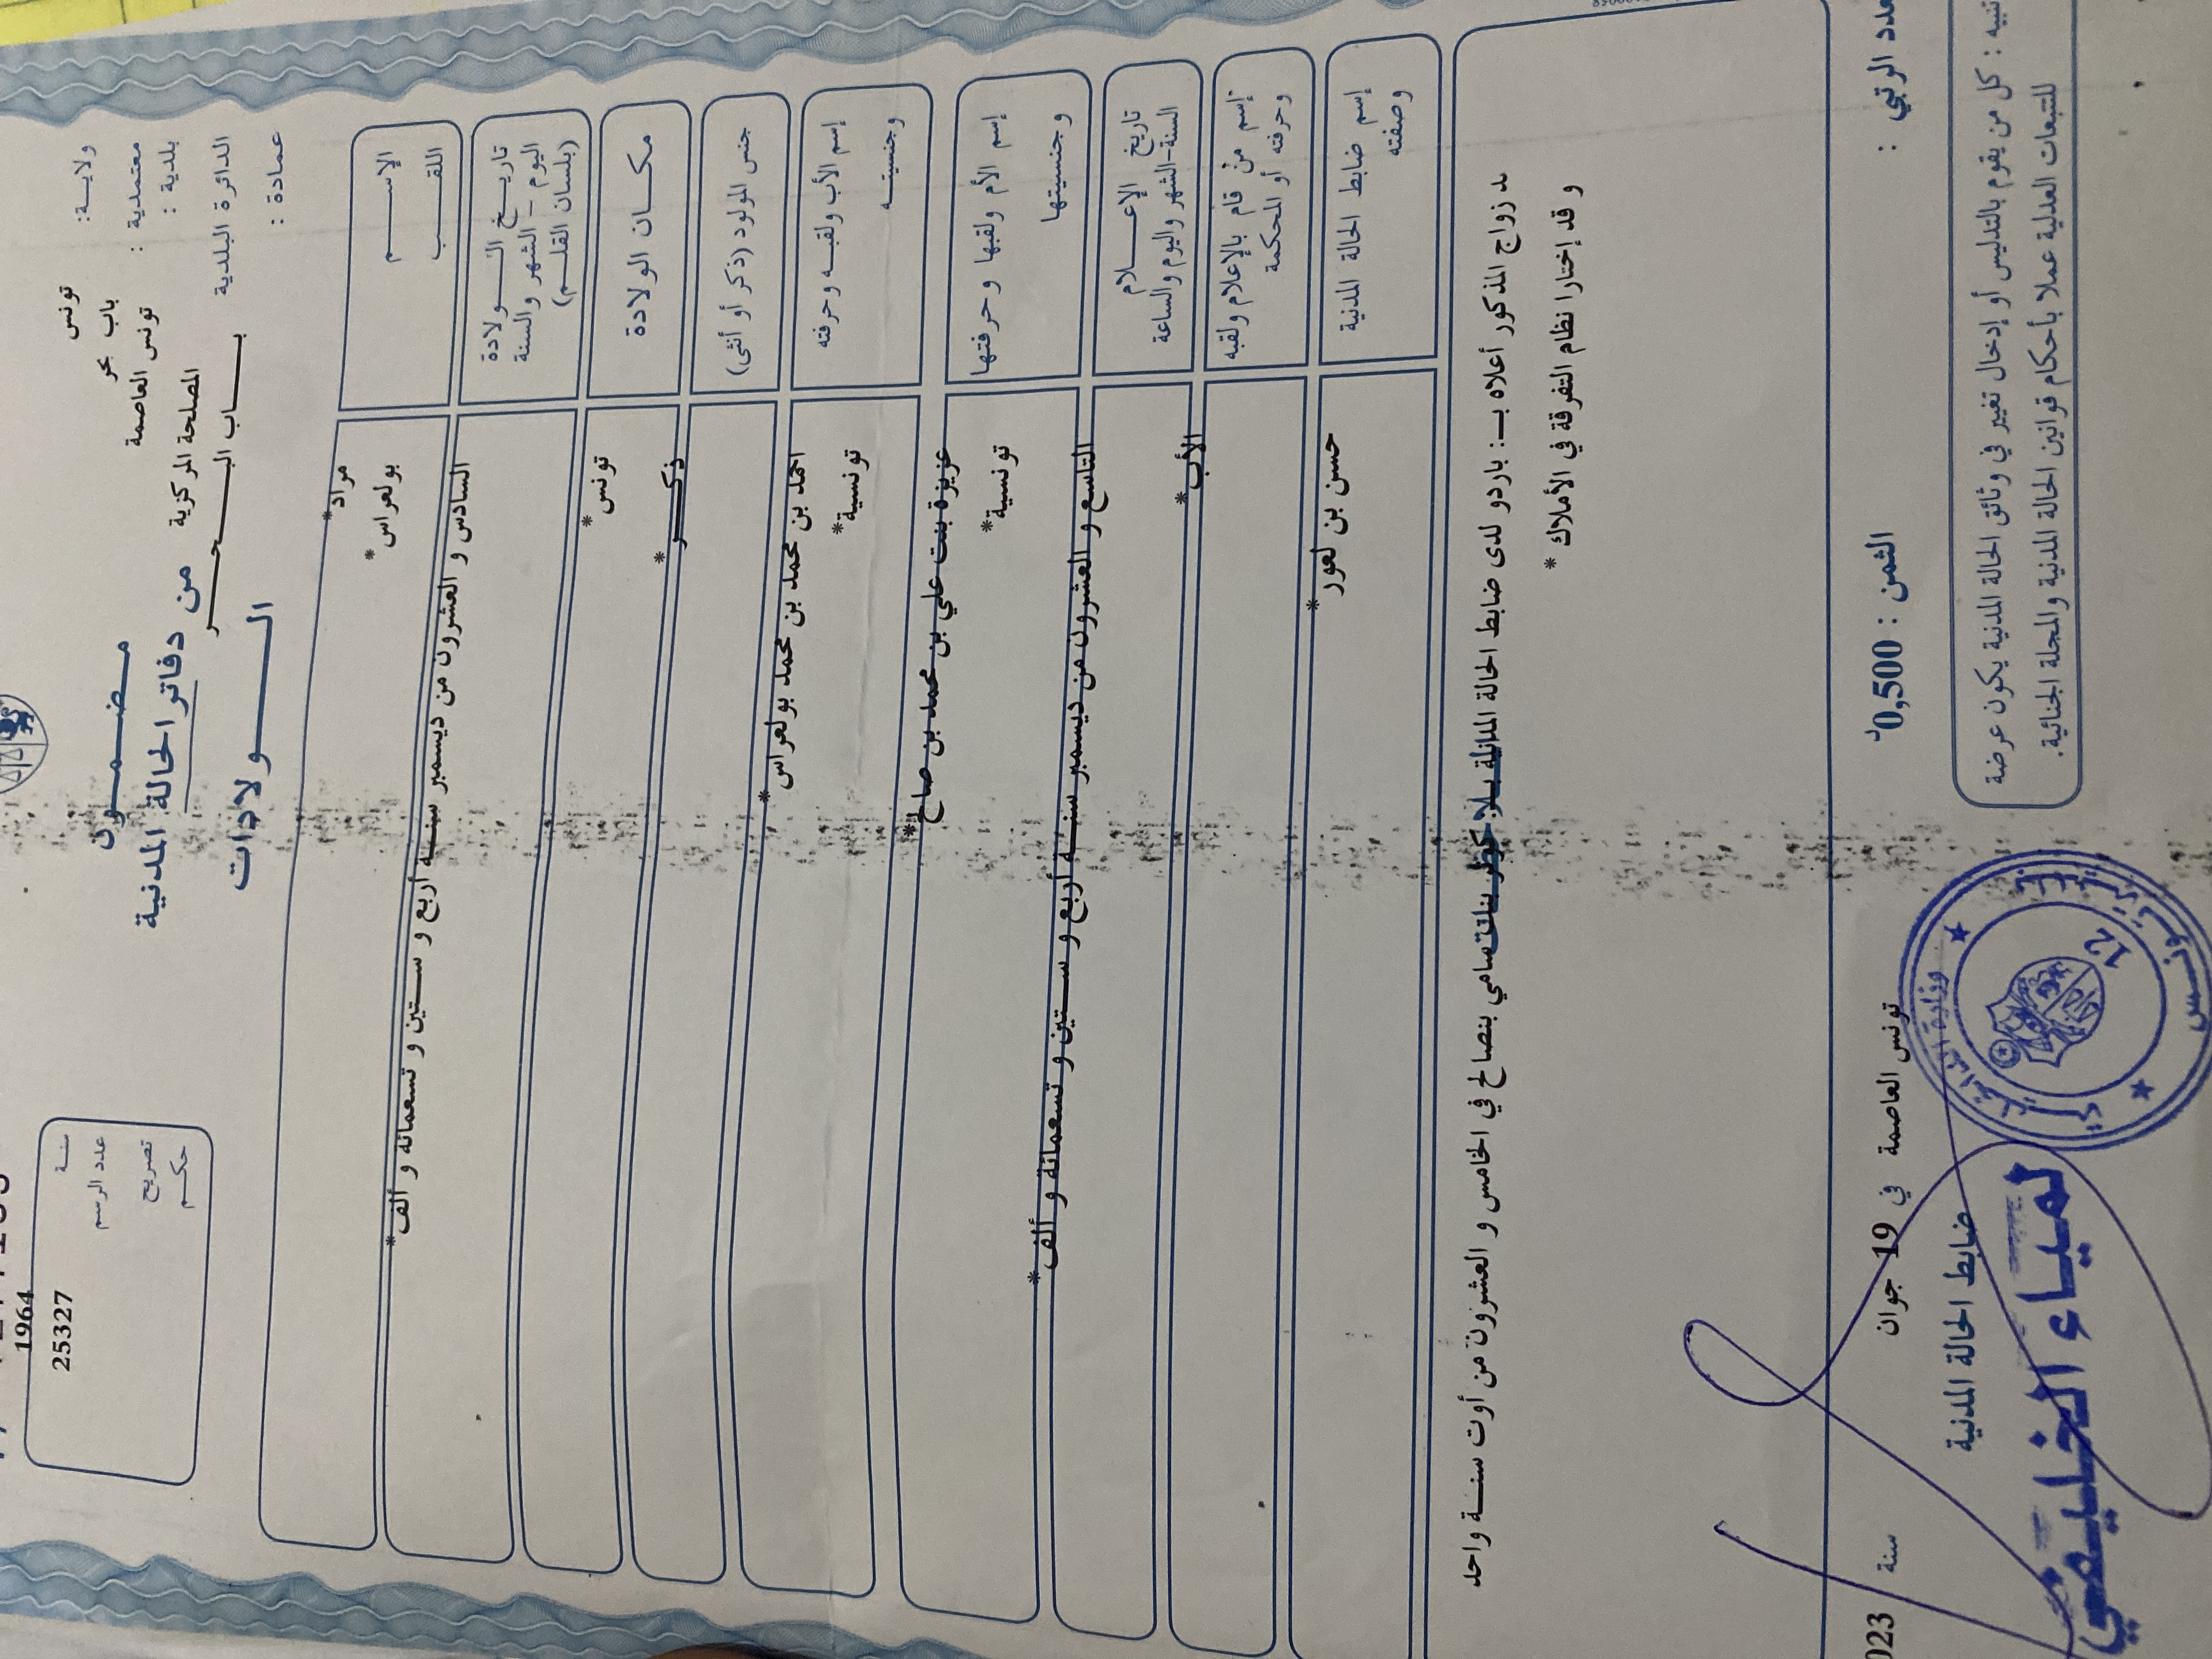 1964 سنة
25327 عدد الرسم
تصريح
حكم
ولاية: تونس
معتمدية : باب بحر
بلدية : تونس العاصمة
الدائرة البلدية المصلحة المركزية
عمادة : باب البحر
مضمون
من دفاتر الحالة المدنية
الولادات
الإسم مراد*
اللقب بولعراس*
تاريخ الولادة السادس و العشرون من ديسمبر سنة أربع و ستين و تسعمائة و ألف*
اليوم - الشهر والسنة
(بلسان القلم)
مكان الولادة تونس*
جنس المولود (ذكر أو أنثى) ذكر*
إسم الأب ولقبه وحرفته احمد بن محمد بن محمد بولعراس*
وجنسيته تونسية*
إسم الأم ولقبها وحرفتها عزيزة بنت علي بن محمد بن صالح*
وجنسيتها تونسية*
تاريخ الإعلام التاسع و العشرون من ديسمبر سنة أربع و ستين و تسعمائة و ألف*
السنة-الشهر واليوم والساعة
إسم من قام بالإعلام ولقبه الأب*
وحرفته أو المحكمة
إسم ضابط الحالة المدنية حسن بن لعور*
وصفته
زواج المذكور أعلاه بـ: باردو لدى ضابط الحالة المدنية سامي بنصالح في الخامس و العشرون من أوت سنة واحد
و قد إختارا نظام التفرقة في الأملاك *
عدد الرتبي :
الثمن : 0,500د
تونس العاصمة في 19 جوان سنة 023
ضابط الحالة المدنية
لمياء الخليفي
تنبيه : كل من يقوم بالتدليس أو إدخال تغيير في وثائق الحالة المدنية يكون عرضة
للتتبعات العدلية عملا بأحكام قوانين الحالة المدنية والمجلة الجنائية.
12